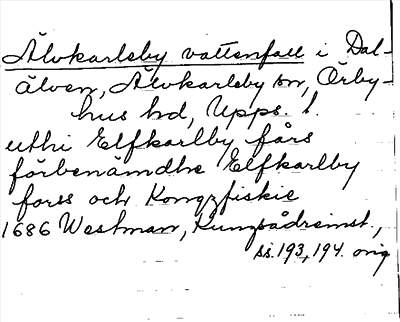 Älvkarleby vattenfall i Dal-
älven, Älvkarleby sn, Örby-
hus hd, Upps. l.
uthi Elfkarlby fårs
förbenämdhe Elfkarlby
forss och Kongzfiskie
1686 Westman, Kungsådreinst.,
ss. 193, 194. orig